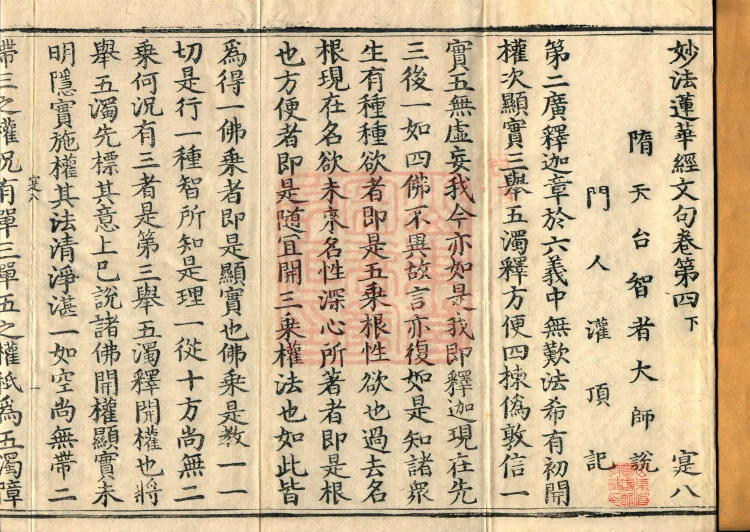 妙法蓮華經文句卷第四下 寔八
隋天台智者大師說
門人灌頂記
第二廣釋迦章於六義中無歎法希有初開
權次顯實三舉五濁釋方便四揀偽敦信一
實五無虛妄我今亦如是我即釋迦現在先
三後一如四佛不異故言亦復如是知諸眾
生有種種欲者即是五乘根性欲也過去名
根現在名欲未來名性深心所著者即是根
也方便者即是隨宜開三乘權法也如此皆
為得一佛乘者即是顯實也佛乘是教一一
切是行一種智所知是理一從十方尚無二
乘何況有三者是第三舉五濁釋開權也將
舉五濁先標其意上已說諸佛開權顯實未
明隱實施權其法清淨湛一如空尚無帶二
寔八
一
帶三之權況有單三單五之權秖為五濁障